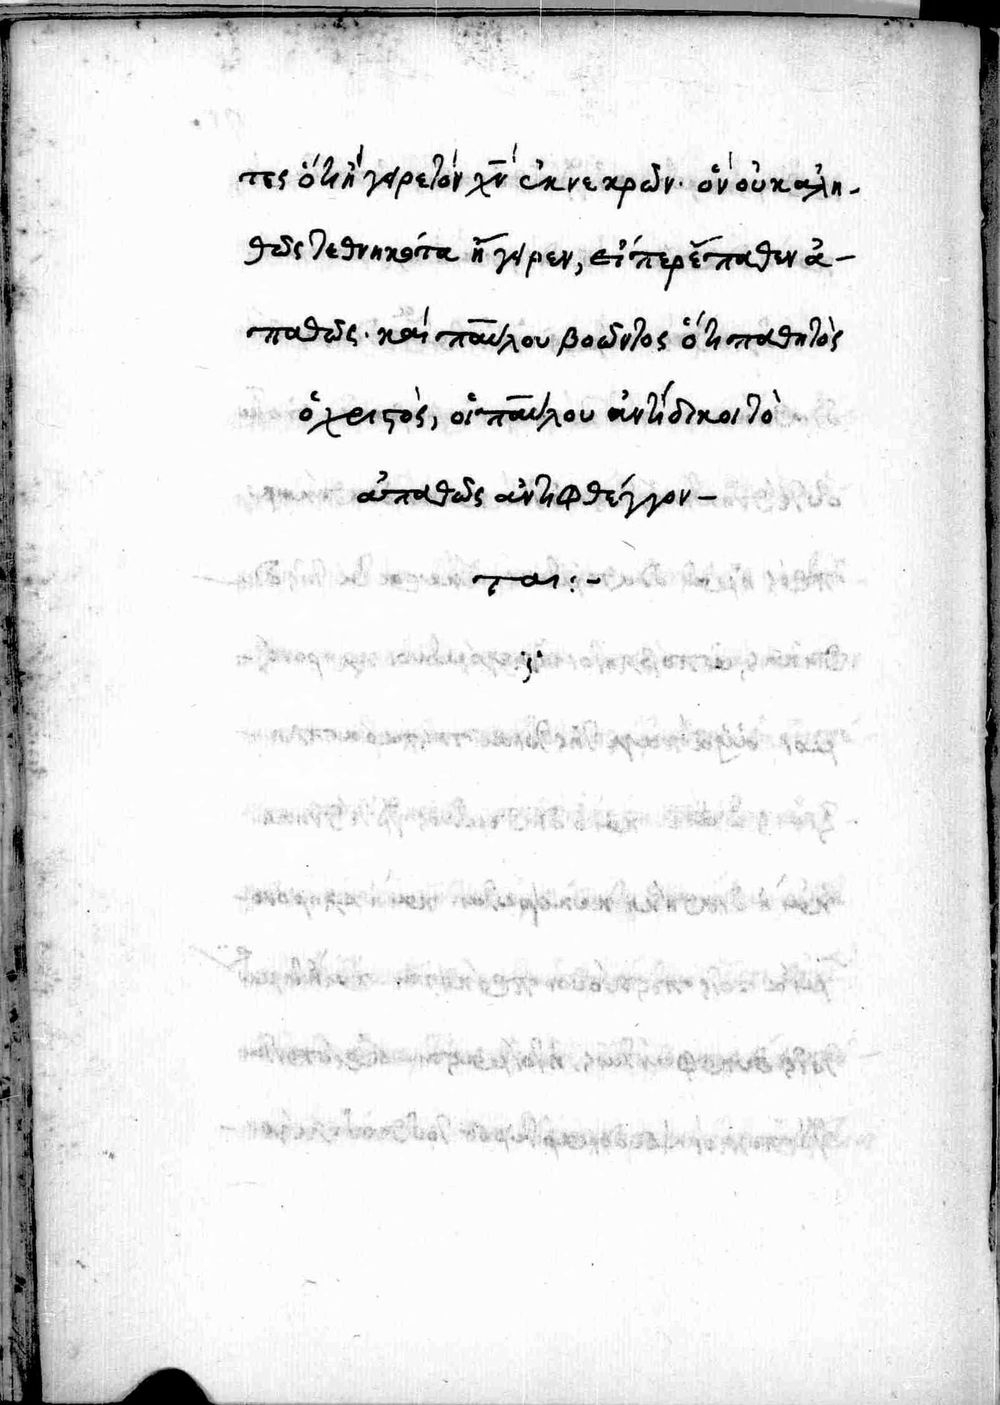 τες ὅτι ἤγειρε τὸν χν̅ ἐκ νεκρῶν· ὃν οὐκ ἀλη-
θῶς τεθνηκότα ἤγειρεν, εἴπερ ἔπαθεν ἀ-
παθῶς· καὶ παύλου βοῶντος ὅτι παθητὸς
ὁ χριστὸς, οἱ παύλου ἀντίδικοι τὸ
ἀπαθῶς ἀντιφθέγγον-
ται:-